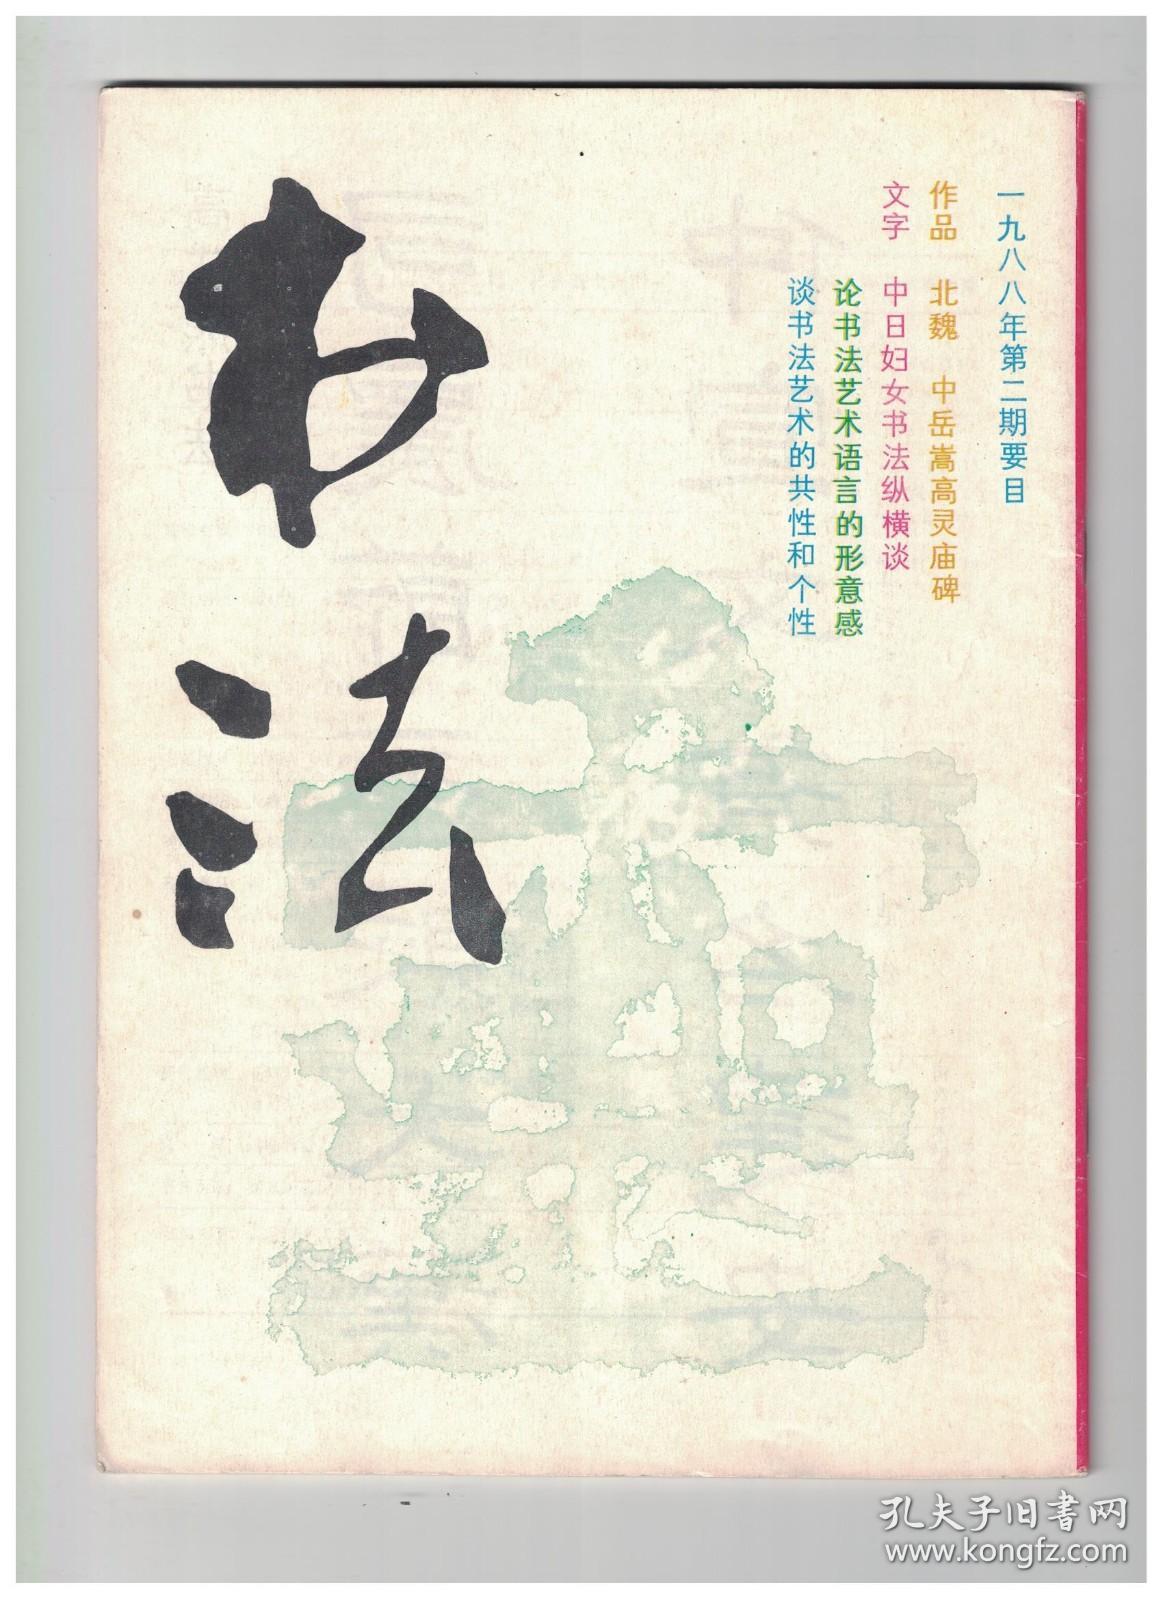 一九八八年第二期要目
作品 北魏 中岳嵩高灵庙碑
文字 中日妇女书法纵横谈
论书法艺术语言的形意感
谈书法艺术的共性和个性
书法
孔夫子旧书网
www.kongfz.com